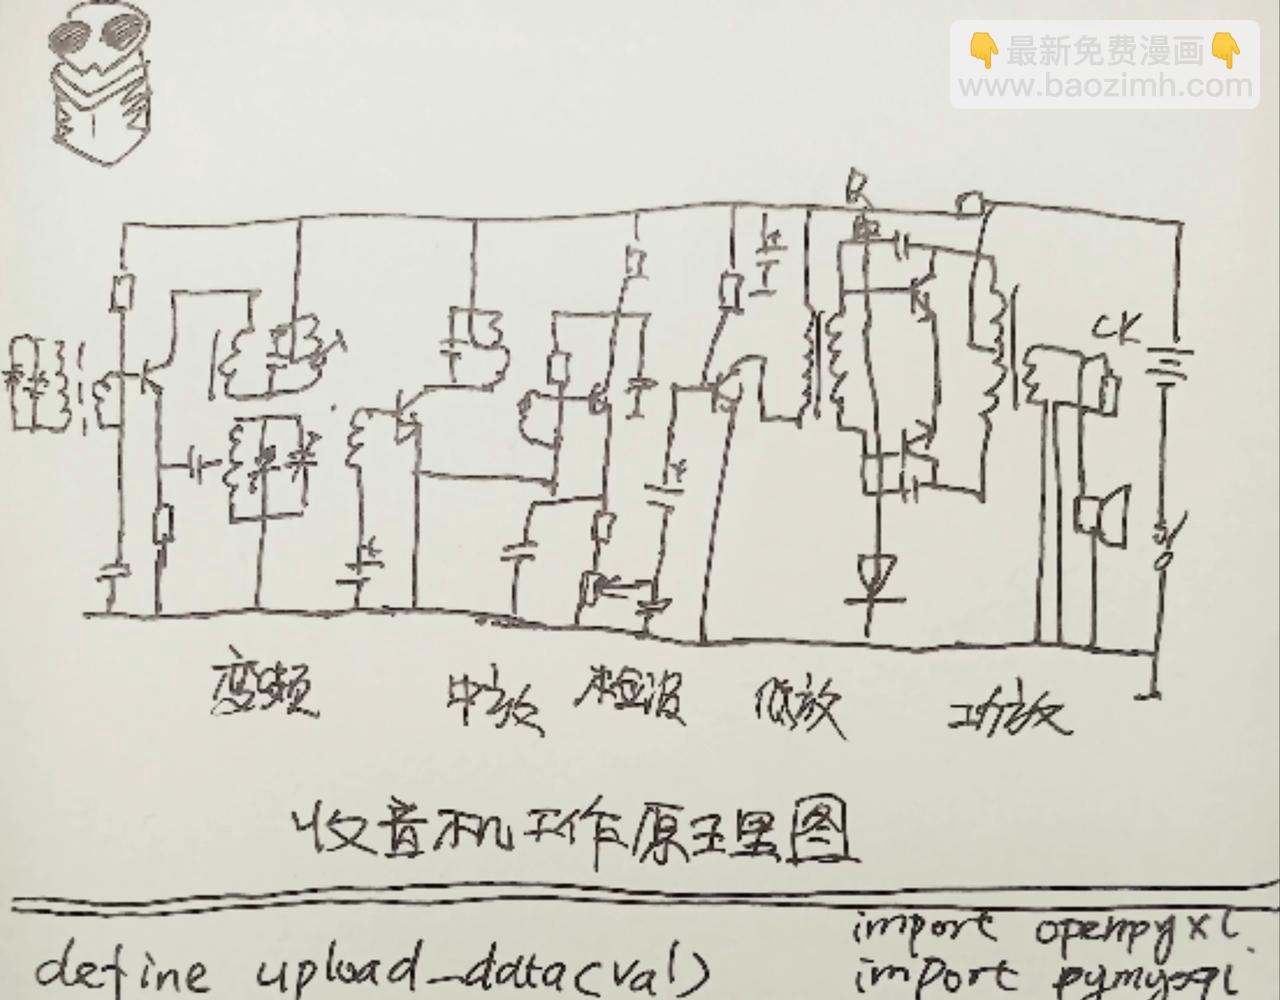 👇最新免费漫画👇
www.baozimh.com
R
CK
变频 中放 检波 低放 功放
收音机工作原理图
import openpyxl
define upload_data(val) import pymysql